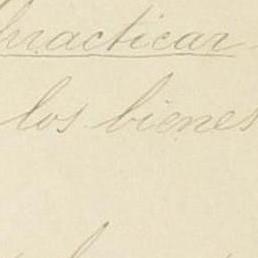 practicar
los bienes